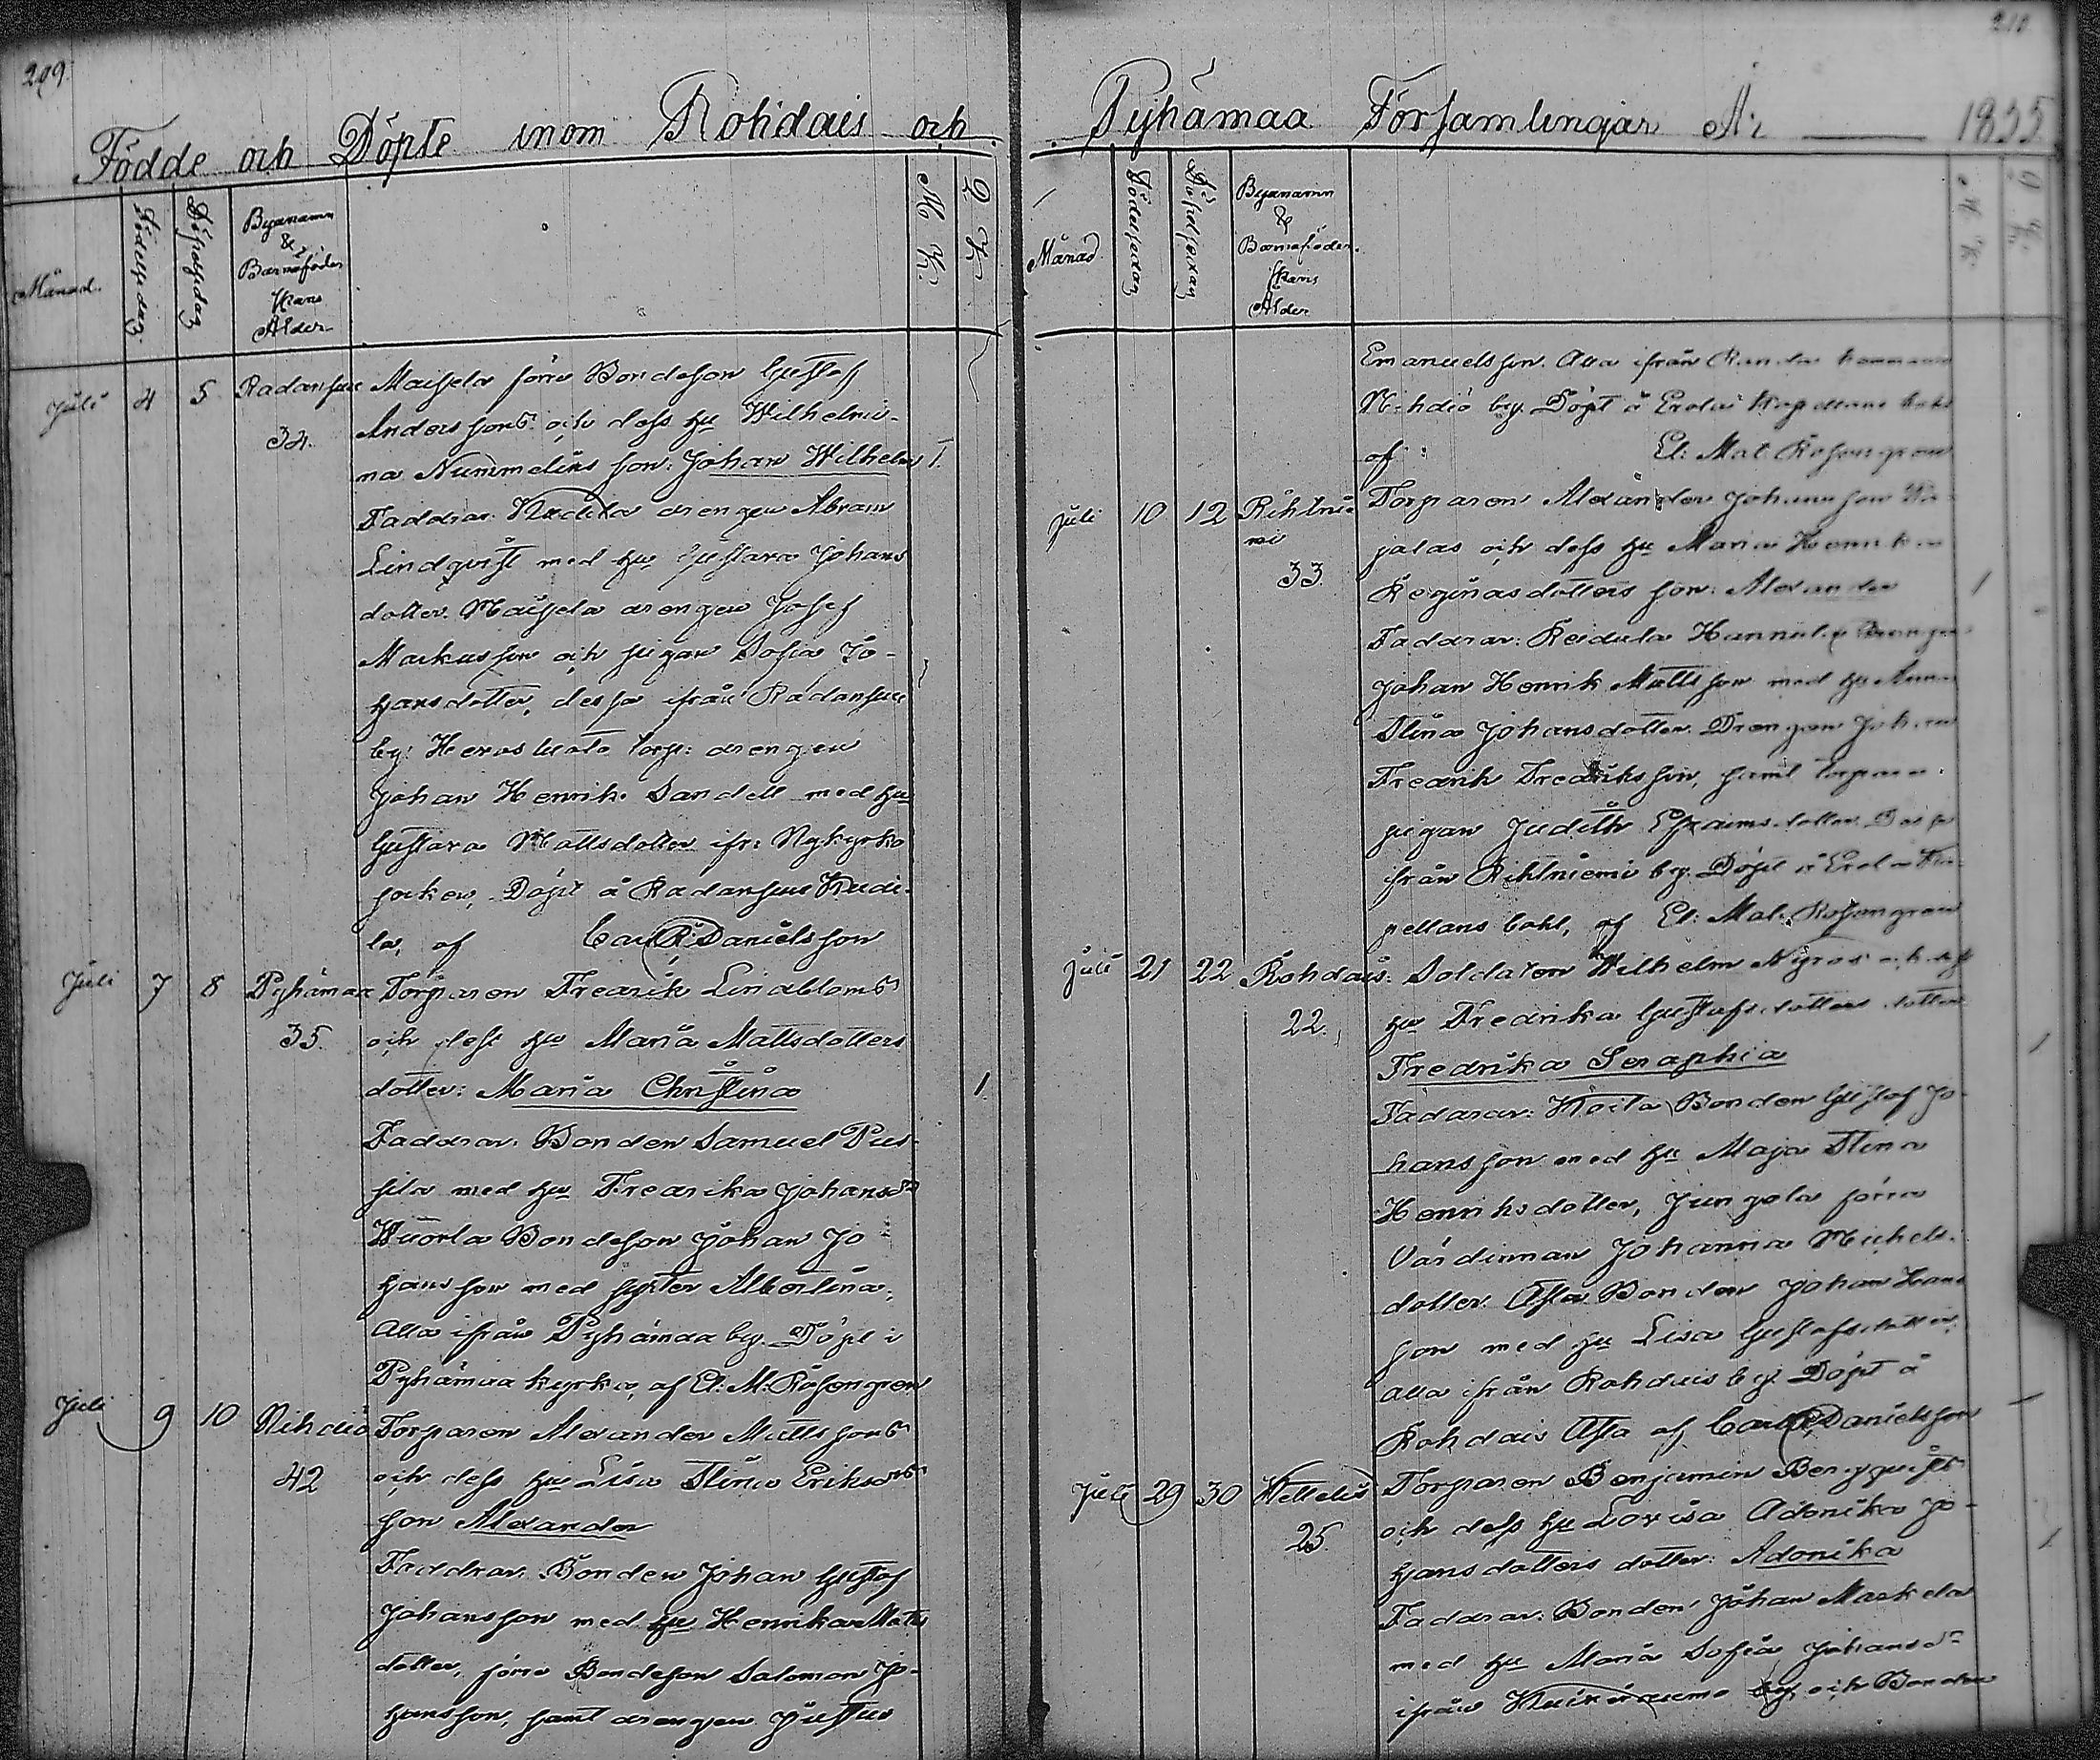 209.
Födde och Döpte inom Rohdais och
Månad.
Födelsedag.
Döpelsedag
Byanamn
&
Barnaföder
skans
Ålder
M. K.
Q. K.
Juli 4 5 Radansuu Maisela förre Bondeson Gustaf
34. Anderssons och dess hu Wilhelmi-
na Nummelins son: Johan Wilhelm 1.
Faddrar: drengen Abram
Lindqvist med hu Gustava Johans
dotter. Maisela drengen Josef
Markusson och pigan Sofia Jo-
hansdotter, dessa ifrån Radansuu
by: torp: drengen
Johan Henrik Sandell med hu
Gustava Mattsdotter ifr: Nykyrko
socken, Döpt å Radansuu
la, af Carl R: Danielsson
Juli 7 8 Pyhämaa Torparen Fredrik Lindbloms
35. och dess hu Maria Mattsdotters
dotter: Maria Christina 1.
Faddrar: Bonden Samuel Pus-
sila med hu Fredrika Johansdr
Wuorla Bondeson Johan Jo-
hansson med syster Albertina,
Alla ifrån Pyhämaa by. Döpt i
Pyhämaa kyrka, af El: M: Rosengren
Juli 9 10 Nihdiö Torparen Alexander Mattssons
42 och dess hu Lisa Stina Eriksdrs
son Alexander
Faddrar: Bonden Johan Gustaf
Johansson med hu Henrika Matts
dotter, förre Bondeson Salomon Jo-
hansson, samt drengen Justus
210
Pyhämaa Församlingar År 1855
Månad
Födelsedag
Döpelsedag
Byanamn
&
Barnaföder.
skans
Ålder
M K
Q K.
Emanuelsson. Alla ifrån
Nihdiö by. Döpt å Erola Kapellans bohl
af: El: Mat: Rosengren
Juli 10 12 Rihtnie Torparen Alexander Johansson
mi jalas och dess hu Maria Henrika
33. Reginasdotters son: Alexander 1
Faddrar: Reidula Hannula Drengen
Johan Henrik Mattsson med hu Anna
Stina Johansdotter. Drengen Johan
Fredrik Fredriksson, samt torpare-
pigan Judith Efraimsdotter. Dessa
ifrån Rihtniemi by. Döpt å Erola Ka-
pellans bohl, af El: Mat: Rosengren
Juli 21 22 Rohdais: Soldaten Wilhelm Nyros och dess
22. hu Fredrika Gustafsdotters dotter
Fredrika Seraphia 1
Faddrar: Koita Bonden Gustaf Jo-
hansson med hu Maja Stina
Henriksdotter, Junpola förra
Värdinnan Johanna Michels-
dotter. Asta Bonden Johan Hans
son med hu Lisa Gustafsdotter,
alla ifrån Rohdais by. Döpt å
Rohdais Asta af Carl R: Danielsson
Juli 29 30 Wettelis Torparen Benjamin Bergqvists
25. och dess hu Lovisa Adonika Jo-
hansdotters dotter: Adonika 1
Faddrar: Bonden Johan Markela
med hu Maria Sofia Johansdr
ifrån by, och Bonden